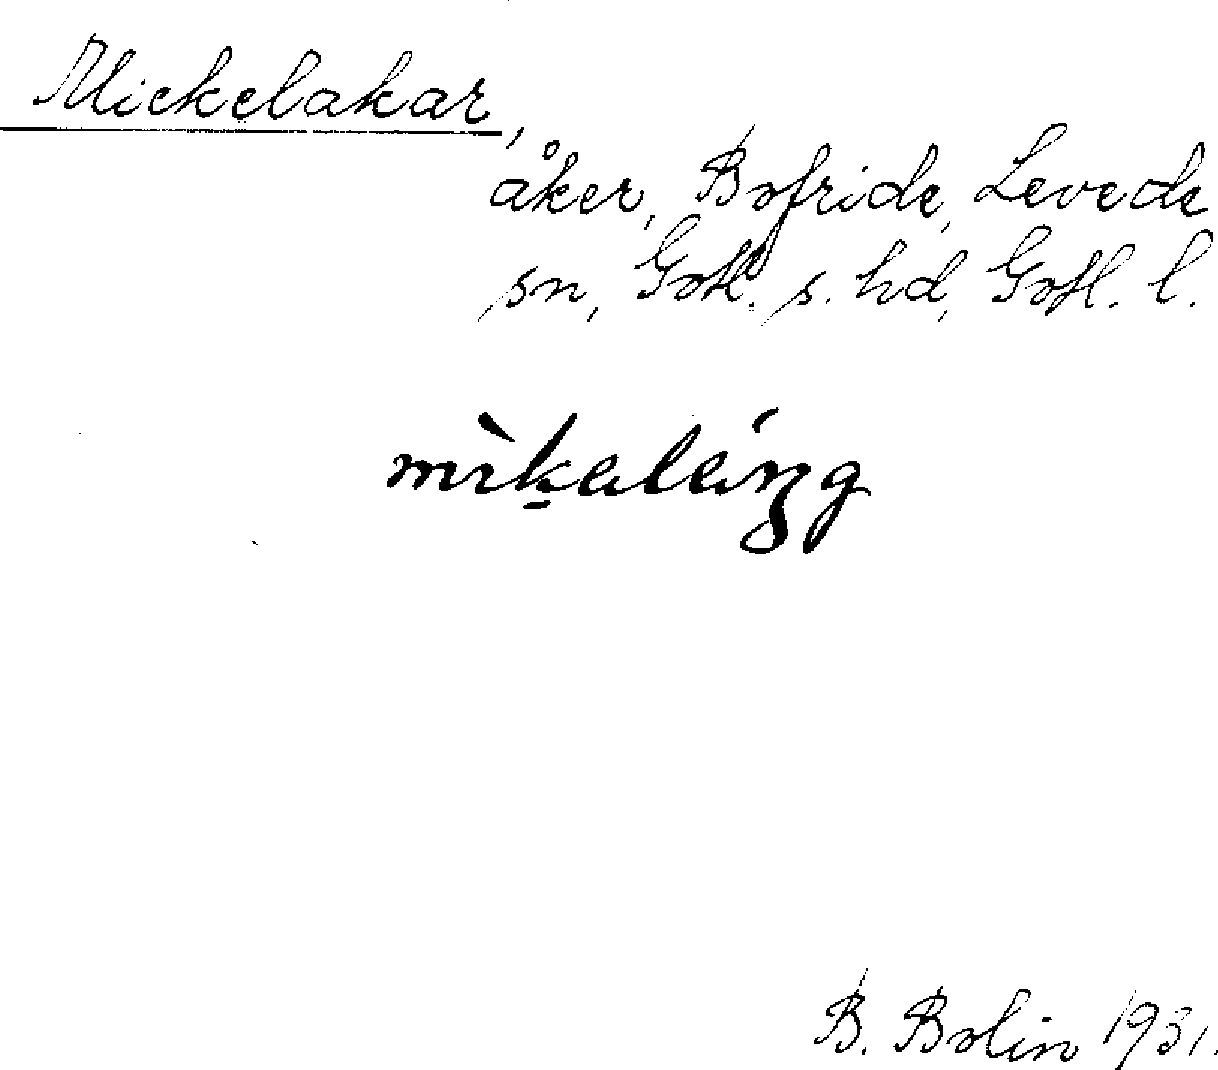 Mickelakar,
åker, Bofride, Levede
sn, Gotl. s. hd, Gotl. l.
B. Bolin 1931.